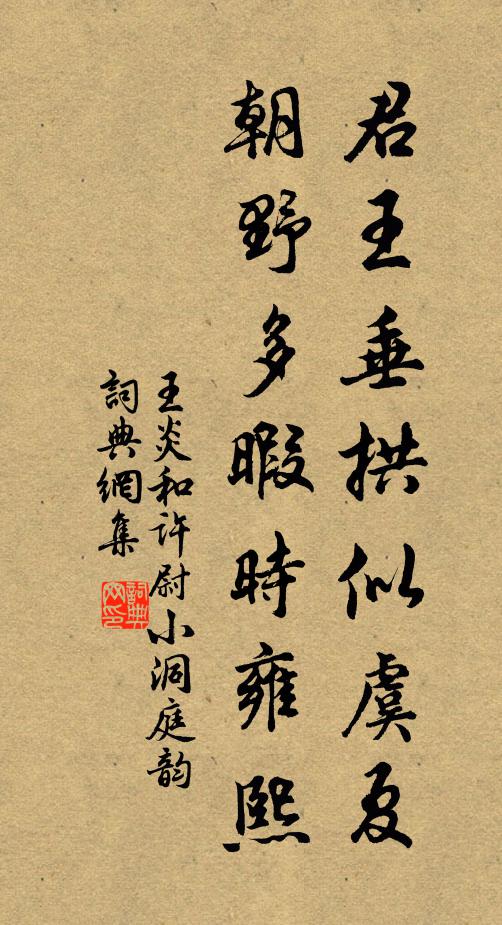 君王垂拱似虞夏
朝野多暇時雍熙
王炎和許尉小洞庭韵
詞典網集
詞典网印